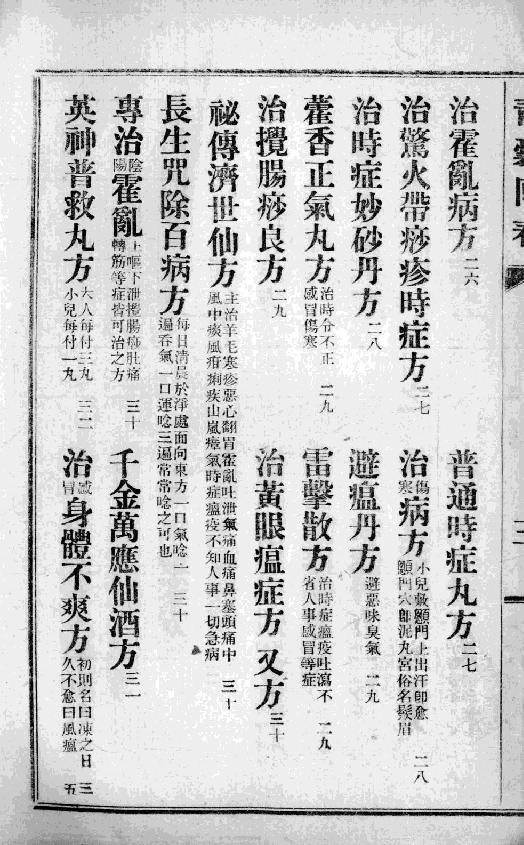 治霍亂病方 二六 普通時症丸方 二七
治驚火帶痧疹時症方 二七 治傷寒病方 小兒敷顖門上出汗卽愈顖門穴卽泥丸宮俗名髮眉 二八
治時症妙砂丹方 二八 避瘟丹方 避惡味臭氣 二九
藿香正氣丸方 治時令不正感冒傷寒 二九 雷擊散方 治時症瘟疫吐瀉不省人事感冒等症 二九
治攪腸痧良方 二九 治黃眼瘟症方 又方 三十
祕傳濟世仙方 主治羊毛寒疹惡心翻胃霍亂吐泄氣痛血痛鼻塞頭痛中風中痰風疳痢疾山嵐瘴氣時症瘟疫不知人事一切急病 三十
長生咒除百病方 每日清晨於淨處面向東方一口氣唸一遍吞氣一口運唸三遍常常唸之可也 三十
專治陰陽霍亂 上嘔下泄攪腸痧肚痛轉筋等症皆可治之方 三十 千金萬應仙酒方 三一
英神普救丸方 大人每付三丸小兒每付一丸 三二 治感冒身體不爽方 初則名曰凍之日久不愈曰風瘟 三五